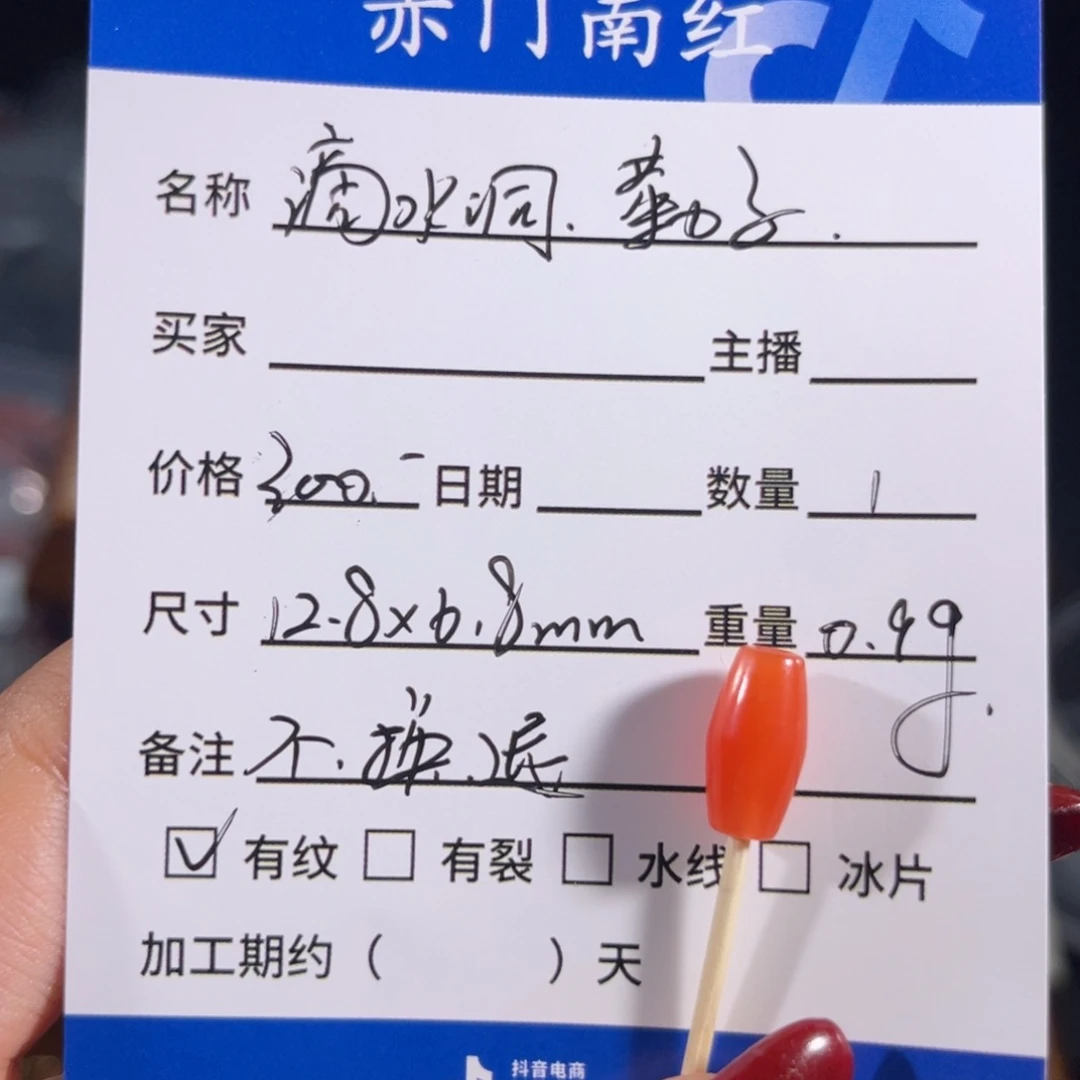 赤门南红
名称 滴水洞.勒子.
买家 主播
价格 300.- 日期 数量 1
尺寸 12.8×6.8mm 重量 0.9g.
备注 不.换.退.
☑ 有纹 □ 有裂 □ 水线 □ 冰片
加工期约（ ）天
抖音电商